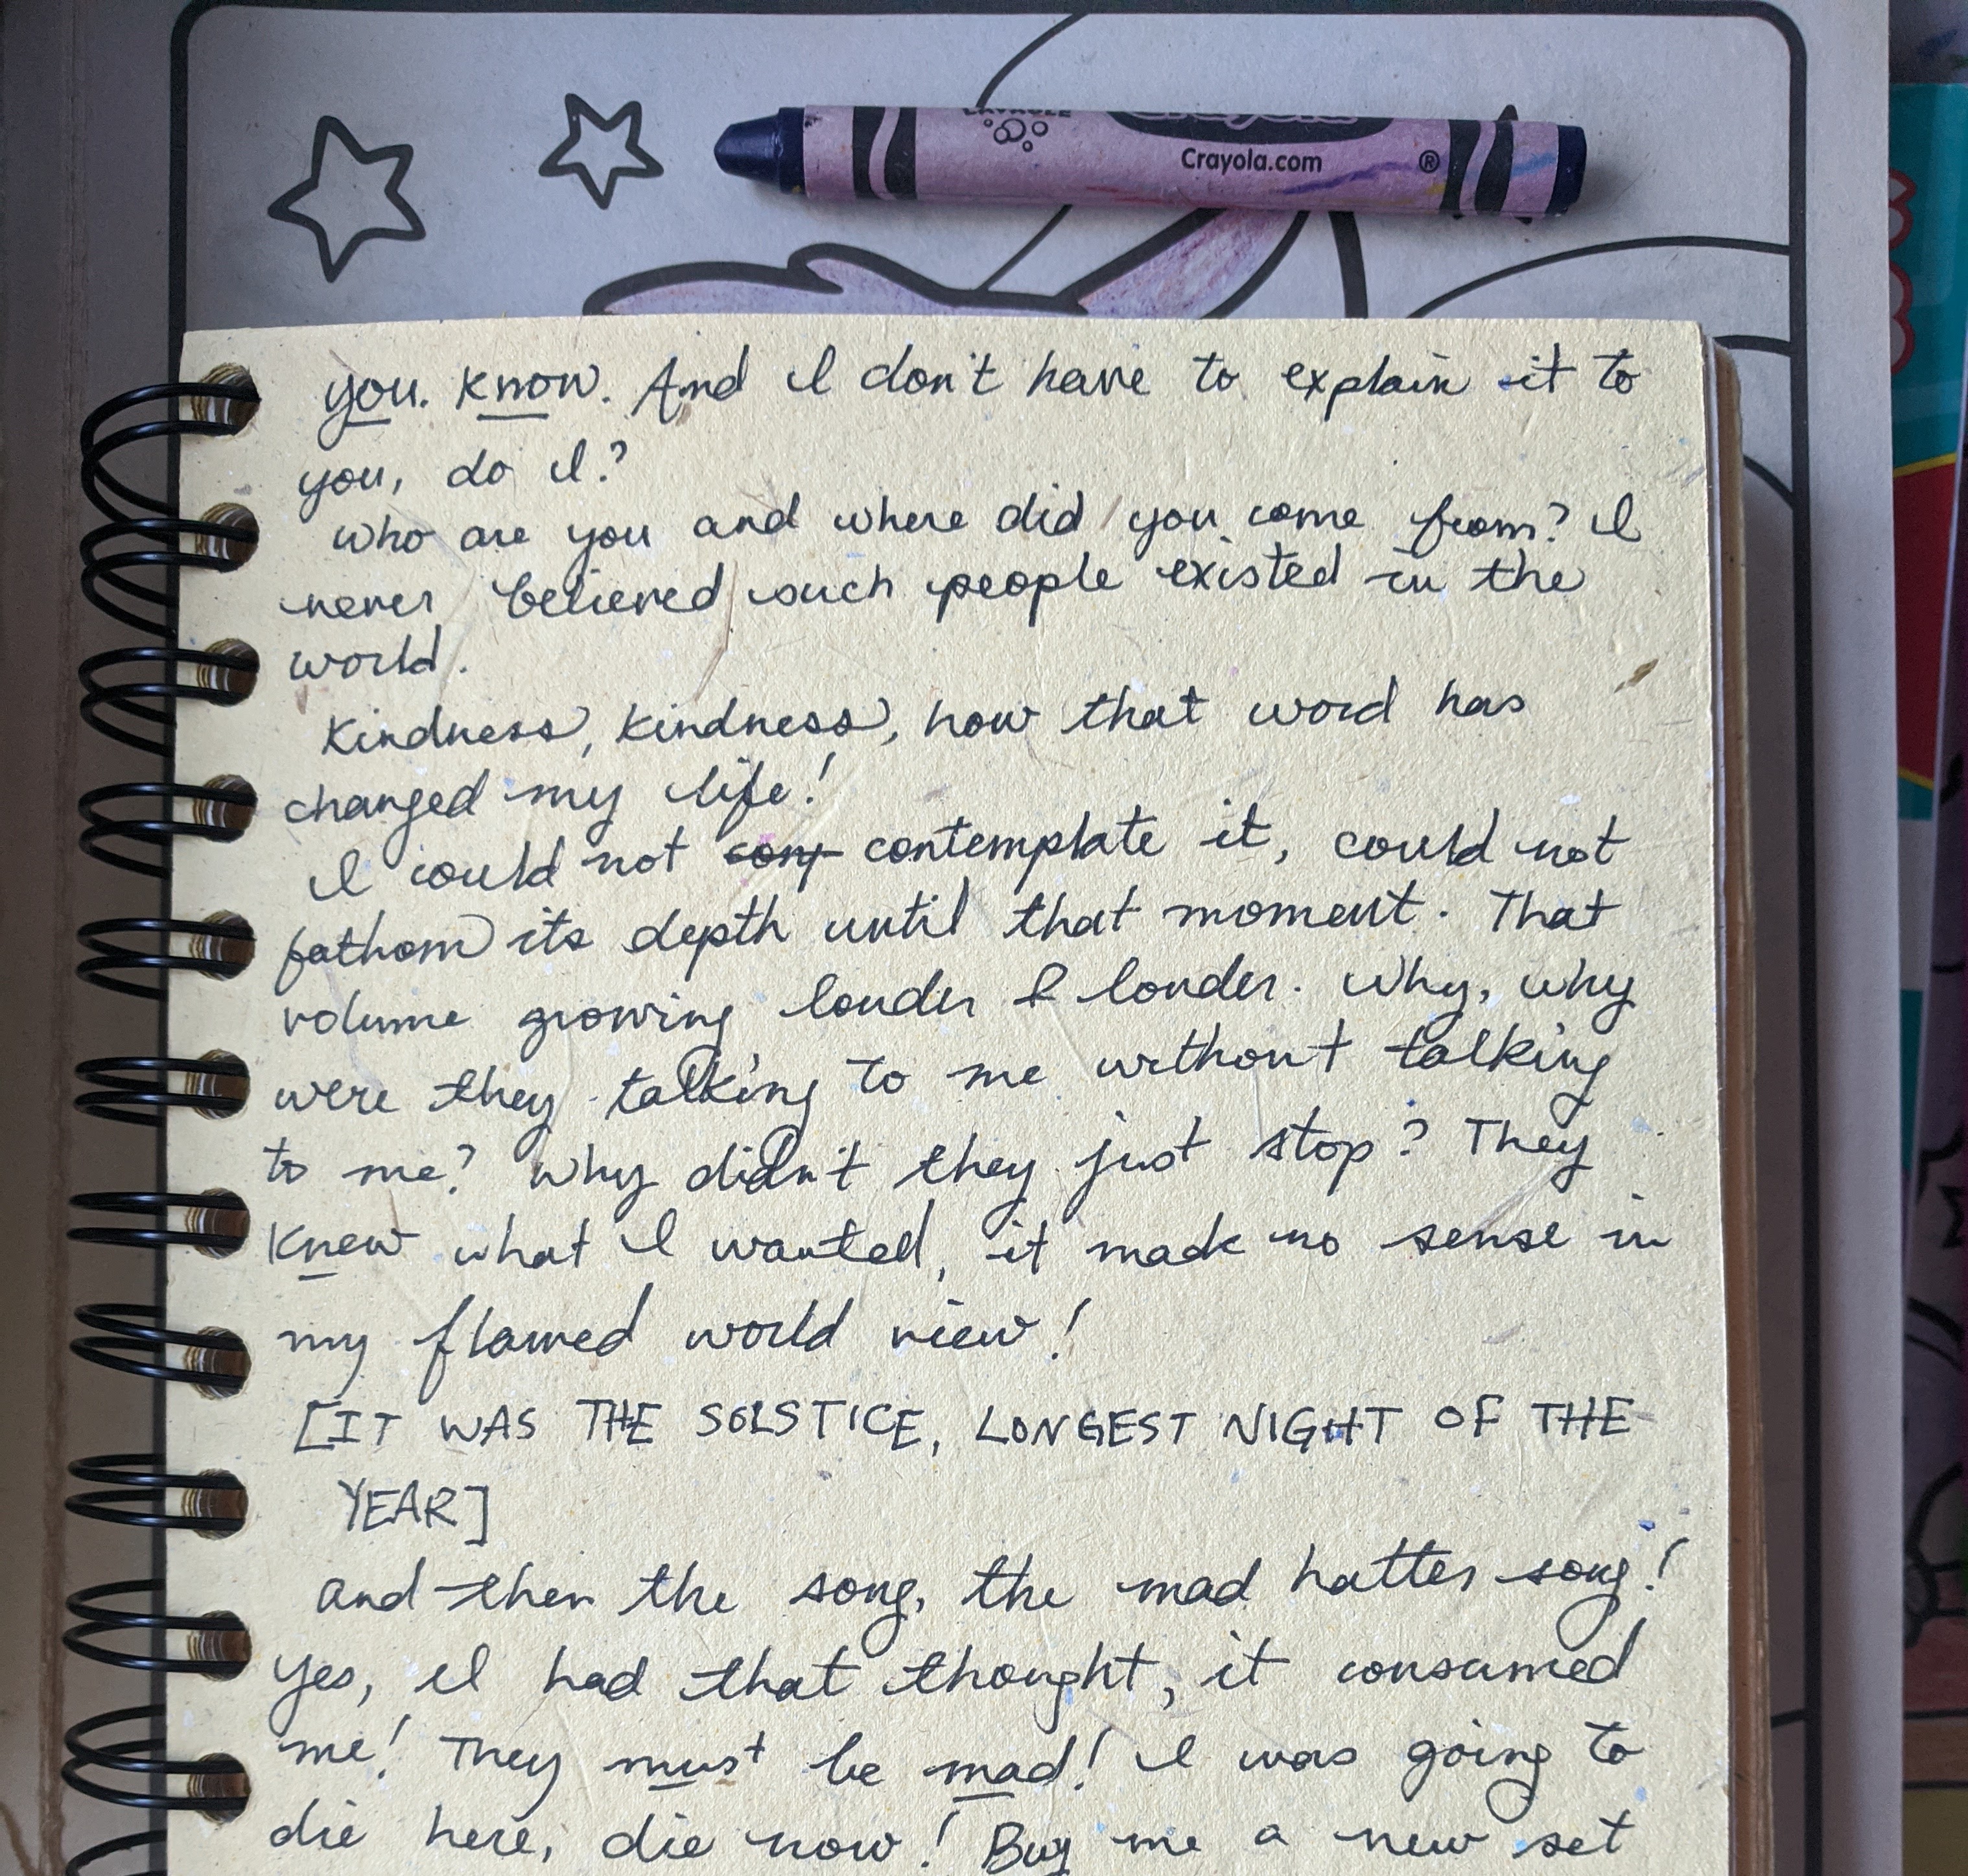 Crayola.com ®
you. know. And I don't have to explain it to
you, do I?
who are you and where did you come from? I
never believed such people existed in the
world.
Kindness, kindness, how that word has
changed my life!
I could not contemplate it, could not
fathom its depth until that moment. That
volume growing louder & louder. Why, why
were they talking to me without talking
to me? Why didn't they just stop? They
knew what I wanted, it made no sense in
my flawed world view!
[IT WAS THE SOLSTICE, LONGEST NIGHT OF THE
YEAR]
and then the song, the mad hatter song!
Yes, I had that thought, it consumed
me! They must be mad! I was going to
die here, die now! Buy me a new set